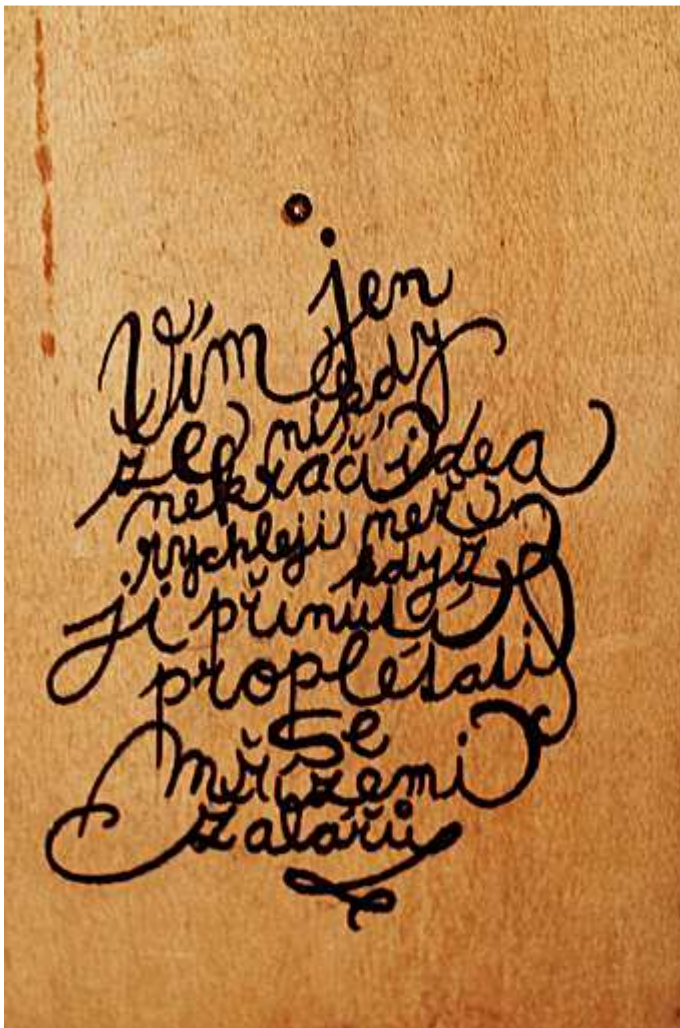 Vím jen
že nikdy
nekráčí idea
rychleji než
když
ji přinutí
proplétati
se
mřížemi
žalářů